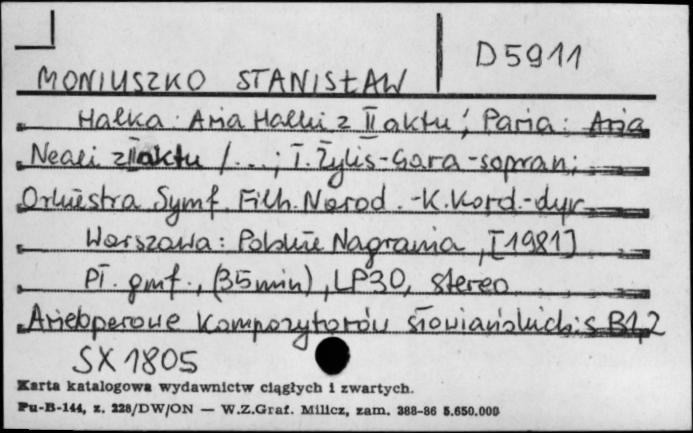 D5911
MONIUSZKO STANISŁAW
Halka: Aria Halki z II aktu; Paria: Aria
Neali z II aktu /...; T. Żylis-Gara-sopran;
Orkiestra Symf. Filh. Narod. - K. Kord.-dyr
Warszawa: Polskie Nagrania, [1981]
Pł. gmf., (35 min), LP30, stereo
Arie operowe kompozytorów słowiańskich; s. B1,2
SX 1805
Karta katalogowa wydawnictw ciągłych i zwartych.
Pu-B-144, z. 228/DW/ON — W.Z.Graf. Milicz, zam. 388-86 5.650.000